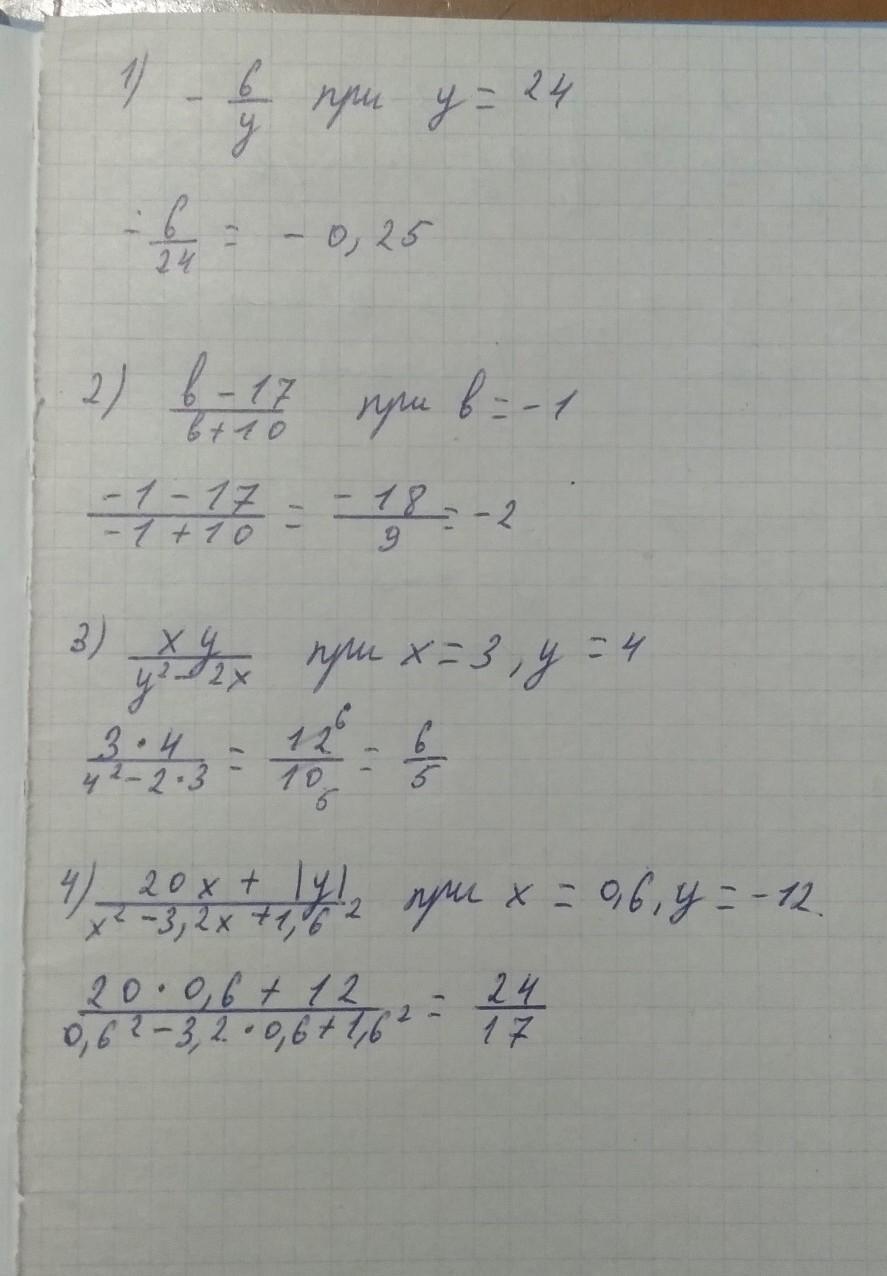 1) - 6/y при y = 24
- 6/24 = - 0,25
2) (в - 17)/(в + 10) при в = -1
(-1 - 17)/(-1 + 10) = (-18)/9 = -2
3) (xy)/(y² - 2x) при x = 3, y = 4
(3 · 4)/(4² - 2 · 3) = 12⁶/10₅ = 6/5
4) (20x + |y|)/(x² - 3,2x + 1,6²) при x = 0,6, y = -12.
(20 · 0,6 + 12)/(0,6² - 3,2 · 0,6 + 1,6²) = 24/17